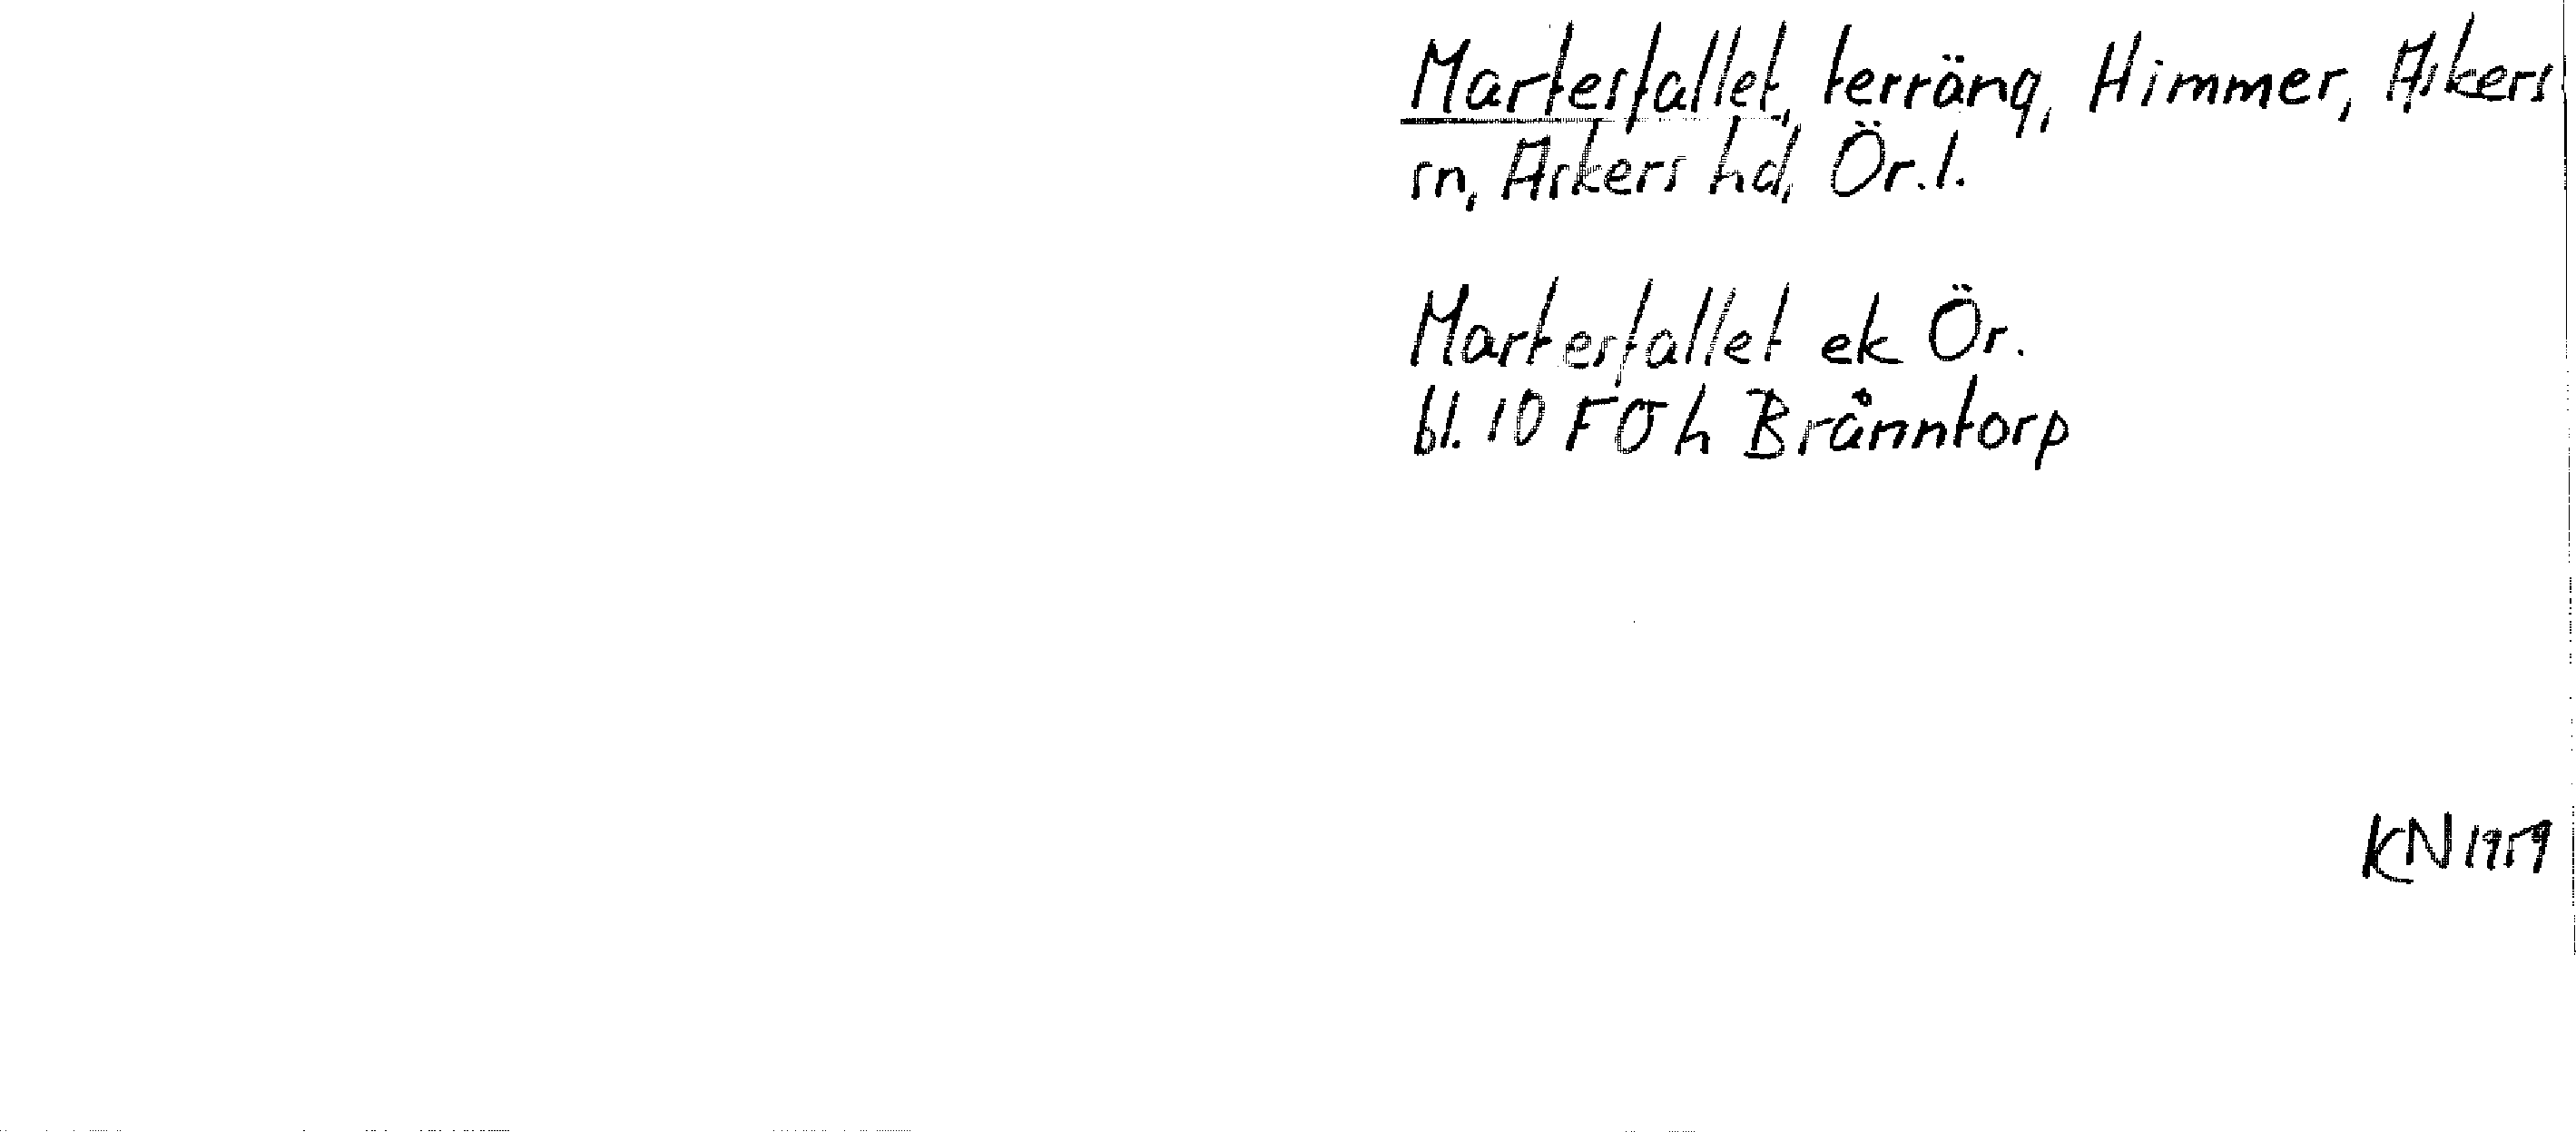 Martesfallet, terräng, Himmer, Askers
sn, Askers hd, Ör.l.
Martesfallet ek Ör.
bl. 10 F 0 h Brånntorp
KN 1959